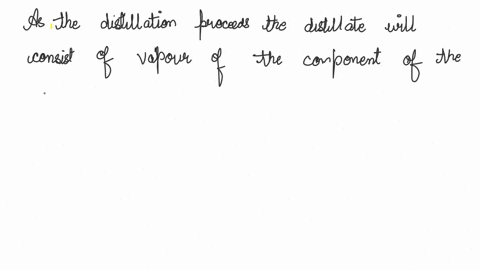 As the distillation proceeds the distillate will
consist of vapour of the component of the